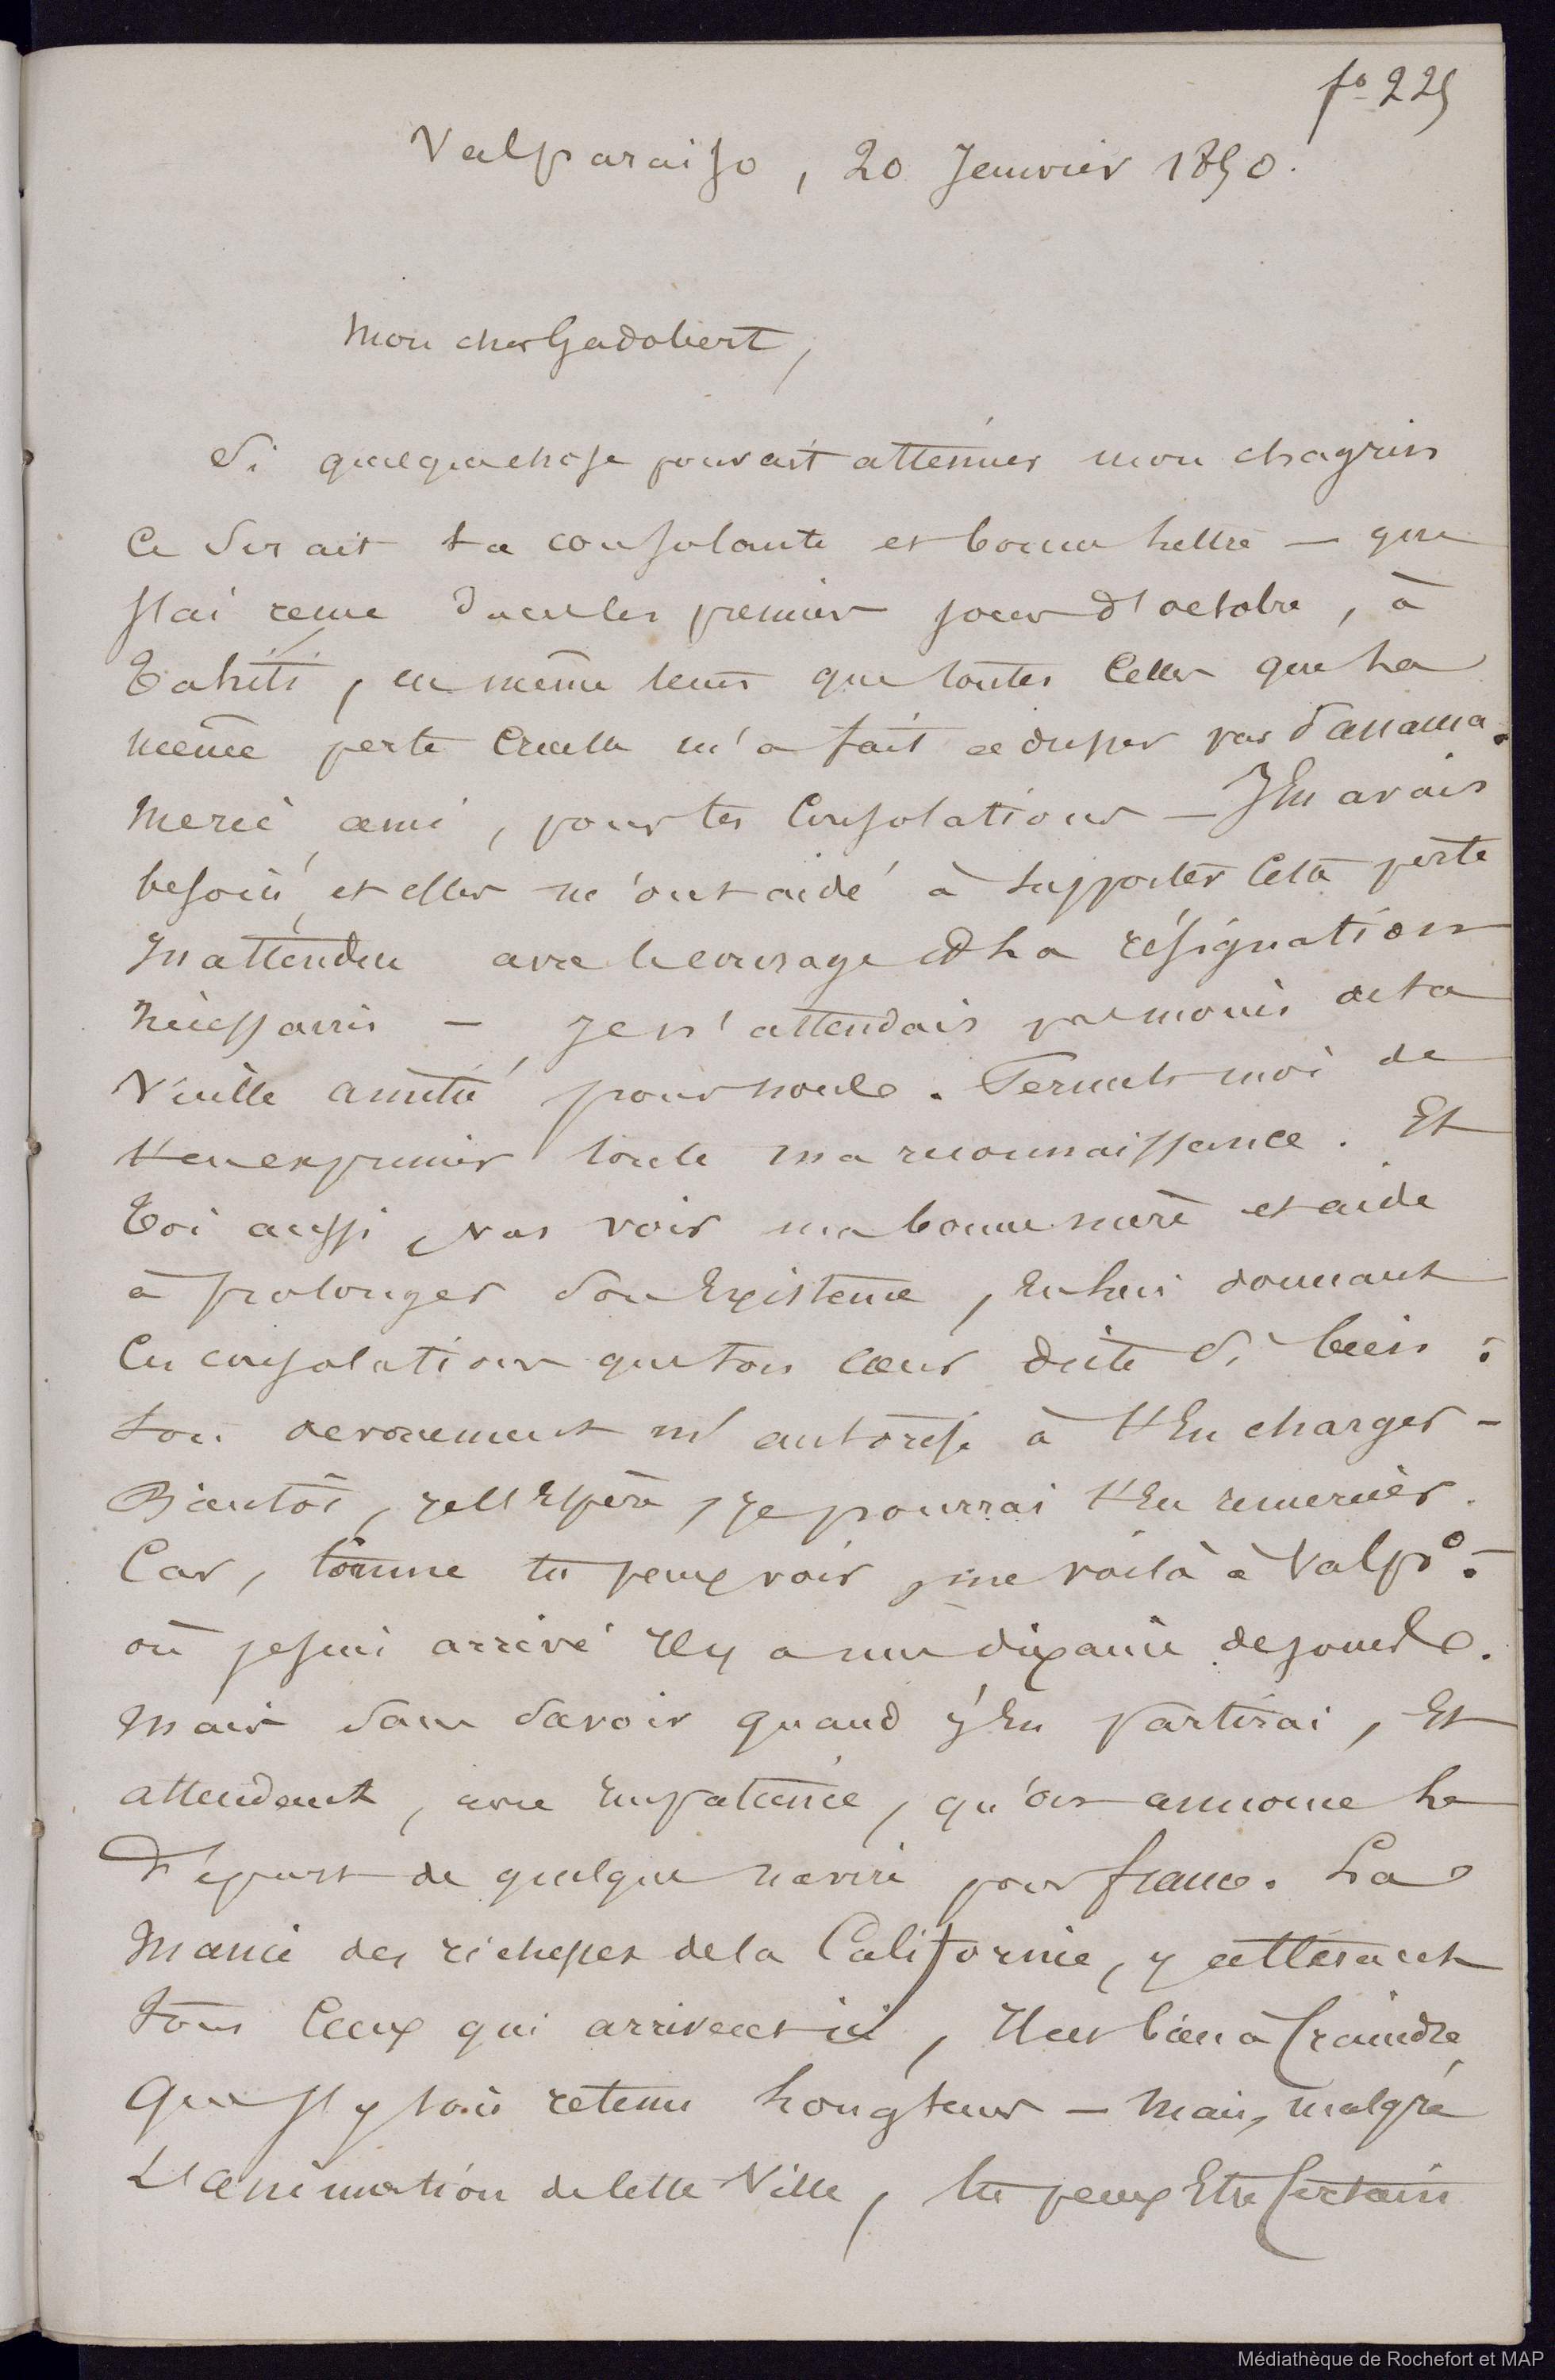 fo 225
Valparaiso, 20 Janvier 1850.
Mon cher Gadobert,
Si quelque chose pouvait atténuer mon chagrin
ce serait ta consolante et bonne lettre — que
j'ai reçue dans les premiers jours d'octobre, à
Tahiti, en même tems que toutes celles que la
même perte cruelle m'a fait adresser par Panama.
Merci, ami, pour tes consolations — J'En avais
besoin, et elles m'ont aidé à supporter cette perte
Inattendue avec le courage et la résignation
nécessaires — je n'attendais pas moins de ta
Vieille amitié pour nous. Permets moi de
t'en exprimer toute ma reconnaissance. Et
Toi aussi, vas voir ma bonne mère et aide
à prolonger son Existence, En lui donnant
ces consolations que ton cœur dicte si bien :
ton dévouement m'autorise à t'En charger —
Bientôt, je l'Espère, je pourrai t'En remercier.
Car, comme tu peux voir, me voilà à Valpo. —
où je suis arrivé Il y a une dixaine de jours.
Mais sans savoir quand j'En partirai, Et
attendant, avec Impatience, qu'on annonce le
Départ de quelque navire pour france. La
Manie des richesses de la Californie, y attirant
tous ceux qui arrivent ici, Il est bien à craindre
Que j'y sois retenu longtems — Mais, malgré
L'animation de cette Ville, tu peux Etre certain
Médiathèque de Rochefort et MAP